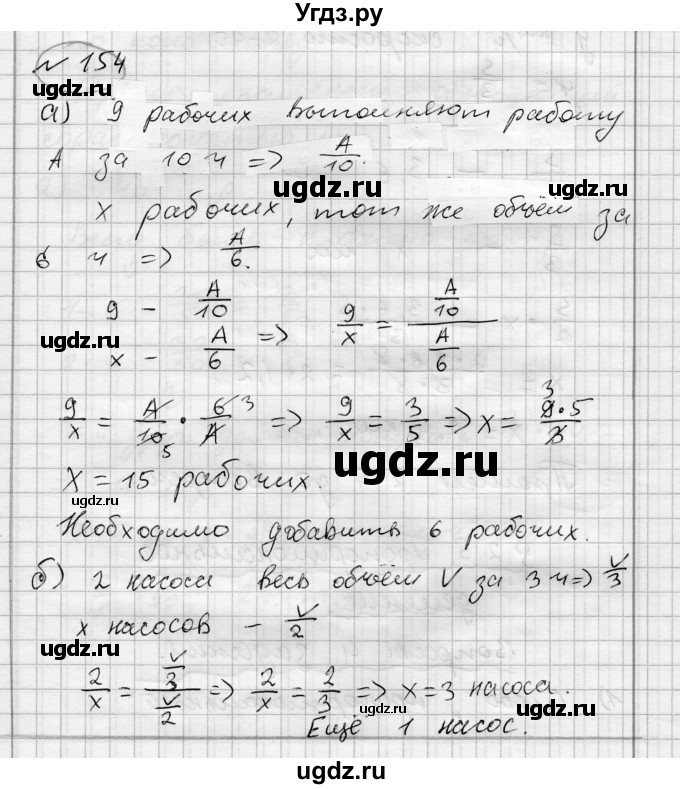 Угдз.ру
№ 154
ugdz.ru
а) 9 рабочих выполняют работу
A за 10 ч => A/10.
ugdz.ru
x рабочих, тот же объём за
6 ч => A/6.
9 - A/10
x - A/6 => 9/x = (A/10)/(A/6)
ugdz.ru
9/x = A/10 5 · 6/A 3 => 9/x = 3/5 => x = 3 9·5/3
ugdz.ru
X = 15 рабочих.
ugdz.ru
Необходимо добавить 6 рабочих.
б) 2 насоса весь объём V за 3 ч => V/3
ugdz.ru
x насосов - V/2
ugdz.ru
2/x = (V/3)/(V/2) => 2/x = 2/3 => x = 3 насоса.
ugdz.ru
ugdz.ru
ugdz.ru
Ещё 1 насос.
ugdz.ru